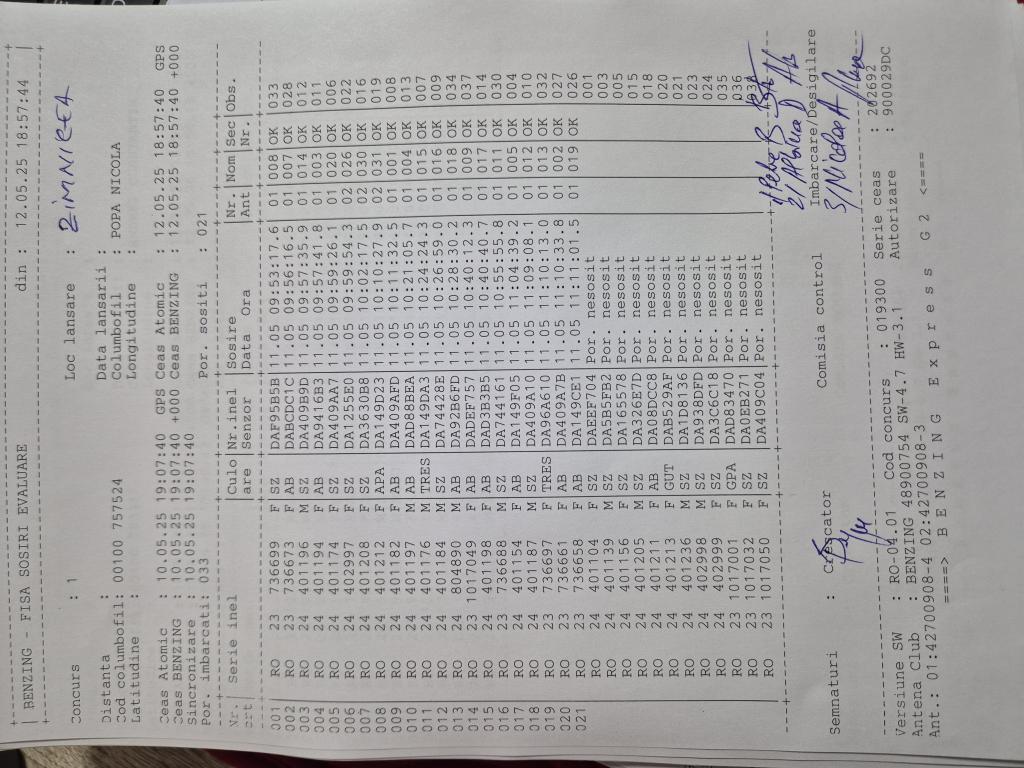 BENZING - FISA SOSIRI EVALUARE din : 12.05.25 18:57:44
Concurs : 1 Loc lansare : ZIMNICEA
Distanta : Data lansarii :
Cod columbofil: 00100 757524 Columbofil : POPA NICOLA
Latitudine : Longitudine :
Ceas Atomic : 10.05.25 19:07:40 GPS Ceas Atomic : 12.05.25 18:57:40 GPS
Ceas BENZING : 10.05.25 19:07:40 +000 Ceas BENZING : 12.05.25 18:57:40 +000
Sincronizare : 10.05.25 19:07:40
Por. imbarcati: 033 Por. sositi : 021
Nr. | Serie inel |Culo|Nr.inel |Sosire |Nr |Nom|Sec|Obs.
crt| |are |Senzor |Data Ora |Ant| |Nr.|
001 RO 23 736699 F SZ DAF95B5B 11.05 09:53:17.6 01 008 OK 033
002 RO 23 736673 F AB DABCDC1C 11.05 09:56:16.5 01 007 OK 028
003 RO 24 401196 M SZ DA409B9D 11.05 09:57:35.9 01 014 OK 012
004 RO 24 401194 F AB DA9416B3 11.05 09:57:41.8 01 003 OK 011
005 RO 24 401174 F SZ DA409AA7 11.05 09:59:26.1 01 020 OK 006
006 RO 24 402997 F SZ DA1255E0 11.05 09:59:54.3 02 026 OK 022
007 RO 24 401208 F SZ DA3630B8 11.05 10:02:17.5 02 030 OK 016
008 RO 24 401212 F APA DA149D23 11.05 10:10:27.9 02 031 OK 019
009 RO 24 401182 F AB DA409AFD 11.05 10:11:22.5 01 001 OK 008
010 RO 24 401197 M AB DAD88BEA 11.05 10:21:05.7 01 004 OK 013
011 RO 24 401176 M TRES DA149DA3 11.05 10:24:24.3 01 015 OK 007
012 RO 24 401184 M SZ DA74428E 11.05 10:26:59.0 01 016 OK 009
013 RO 24 804890 M AB DA92B6FD 11.05 10:28:30.2 01 018 OK 034
014 RO 23 1017049 F AB DADEF757 11.05 10:40:12.3 01 009 OK 037
015 RO 24 401198 F AB DAD3B3B5 11.05 10:40:40.7 01 017 OK 014
016 RO 23 736688 M SZ DA744161 11.05 10:55:55.8 01 011 OK 030
017 RO 24 401154 F AB DA149F05 11.05 11:04:39.2 01 005 OK 004
018 RO 24 401187 M SZ DA409A10 11.05 11:09:08.1 01 012 OK 010
019 RO 23 736697 F TRES DA96A610 11.05 11:10:13.0 01 013 OK 032
020 RO 23 736661 F AB DA409A7B 11.05 11:10:33.8 01 002 OK 027
021 RO 23 736658 F AB DA149CE1 11.05 11:11:01.5 01 019 OK 026
RO 24 401104 F SZ DAEEF704 Por. nesosit 001
RO 24 401151 M SZ DA5B5FB2 Por. nesosit 003
RO 24 401156 F SZ DA165578 Por. nesosit 005
RO 24 401205 M SZ DA326E7D Por. nesosit 015
RO 24 401211 F AB DA08DCC8 Por. nesosit 018
RO 24 401213 F GUT DAB529AF Por. nesosit 020
RO 24 401236 M SZ DA1D8136 Por. nesosit 021
RO 24 402998 M SZ DA938DFD Por. nesosit 023
RO 24 402999 F SZ DA3C6C18 Por. nesosit 024
RO 23 1017001 F GPA DAD83470 Por. nesosit 035
RO 23 1017032 F SZ DA0EB271 Por. nesosit 036
RO 23 1017050 F SZ DA409C04 Por. nesosit
Semnaturi : Crescator Comisia control Imbarcare/Desigilare
Versiune SW : RO-04.01 Cod concurs : 019300 Serie ceas : 202692
Antena Club : BENZING 48900754 SW-4.7 HW-3.1 Autorizare : 900029DC
Ant.: 01:42700908-4 02:42700908-3
====> B E N Z I N G E x p r e s s G 2 <====